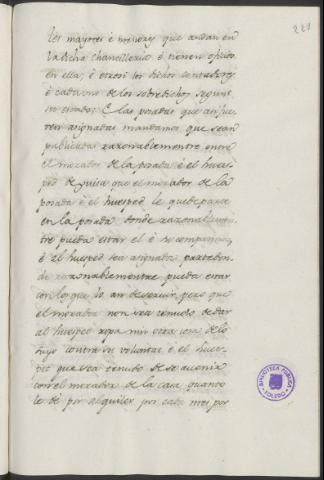 221
les mayores è menores que andan en
la dicha chancilleria è tienen oficio
en ella; è otrosi los dichos contadores
è cada uno de los sobredichos segun
su estado; E las posadas que ansi fue
ren asignadas mandamos que sean
publicadas razonablemente entre
el morador de la posada è el hues-
ped de guisa que el morador de la
posada è el huesped le quede parte
en la posada donde razonablemen
tre pueda estar el è su compañia,
è el huesped sea asignada parte don
de razonablementre pueda estar
con los que lo an de servir, pero que
el morador non sea tenudo de dar
al huesped ropa nin otra cosa de lo
suyo contra su voluntad è el hues-
ped que sea tenudo de se avenir
con el morador de la casa quanto
le dé por alquiler por cada mes por
BIBLIOTECA PÚBLICA
TOLEDO